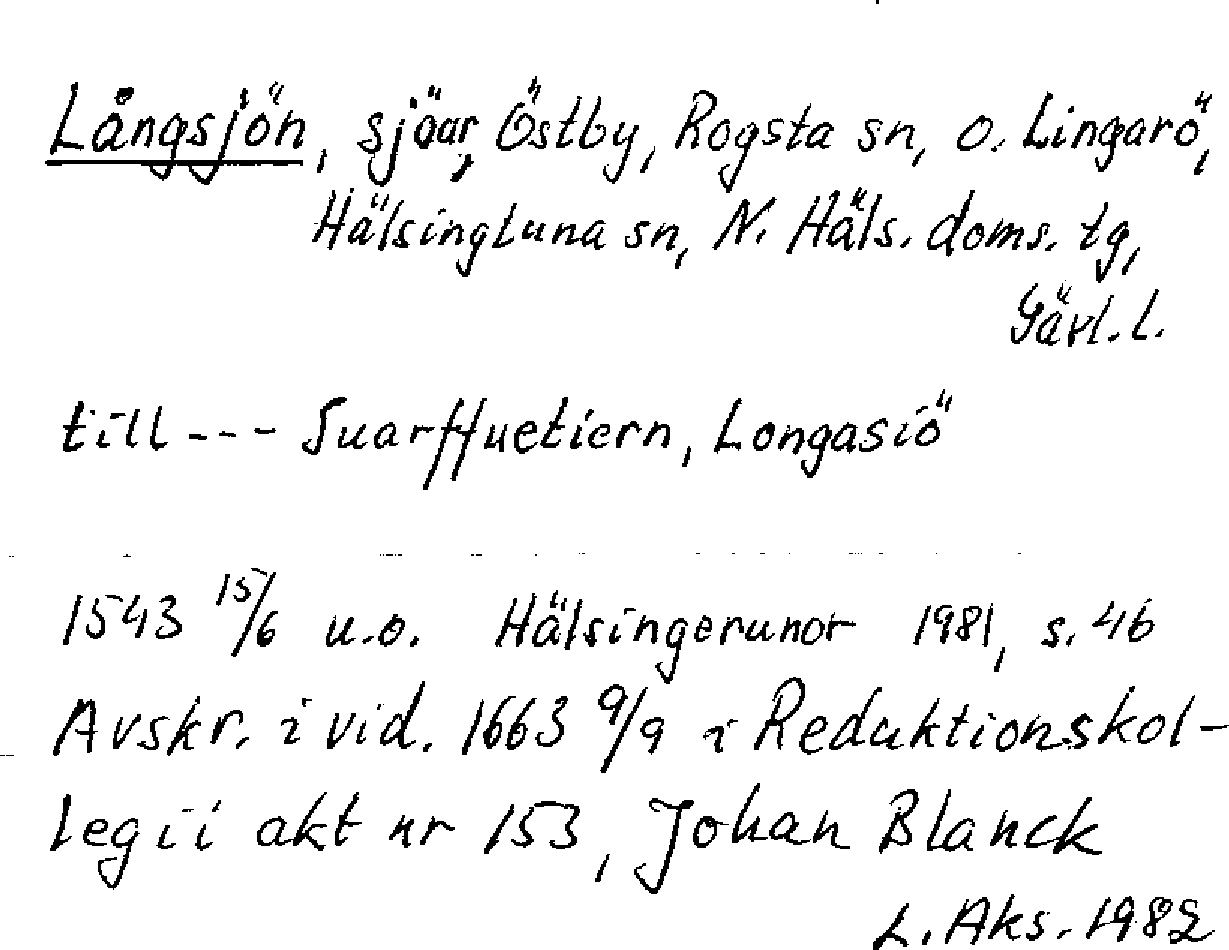 Långsjön, sjöar, Östby, Rogsta sn, o. Lingarö,
Hälsingtuna sn, N. Häls. doms. tg,
Gävl. l.
till --- Suarffuetiern, Longasiö
1543 15/6 u.o. Hälsingerunor 1981, s. 46
Avskr. i vid. 1663 9/9 i Redaktionskol-
legii akt nr 153, Johan Blanck
L. Aks. 1982